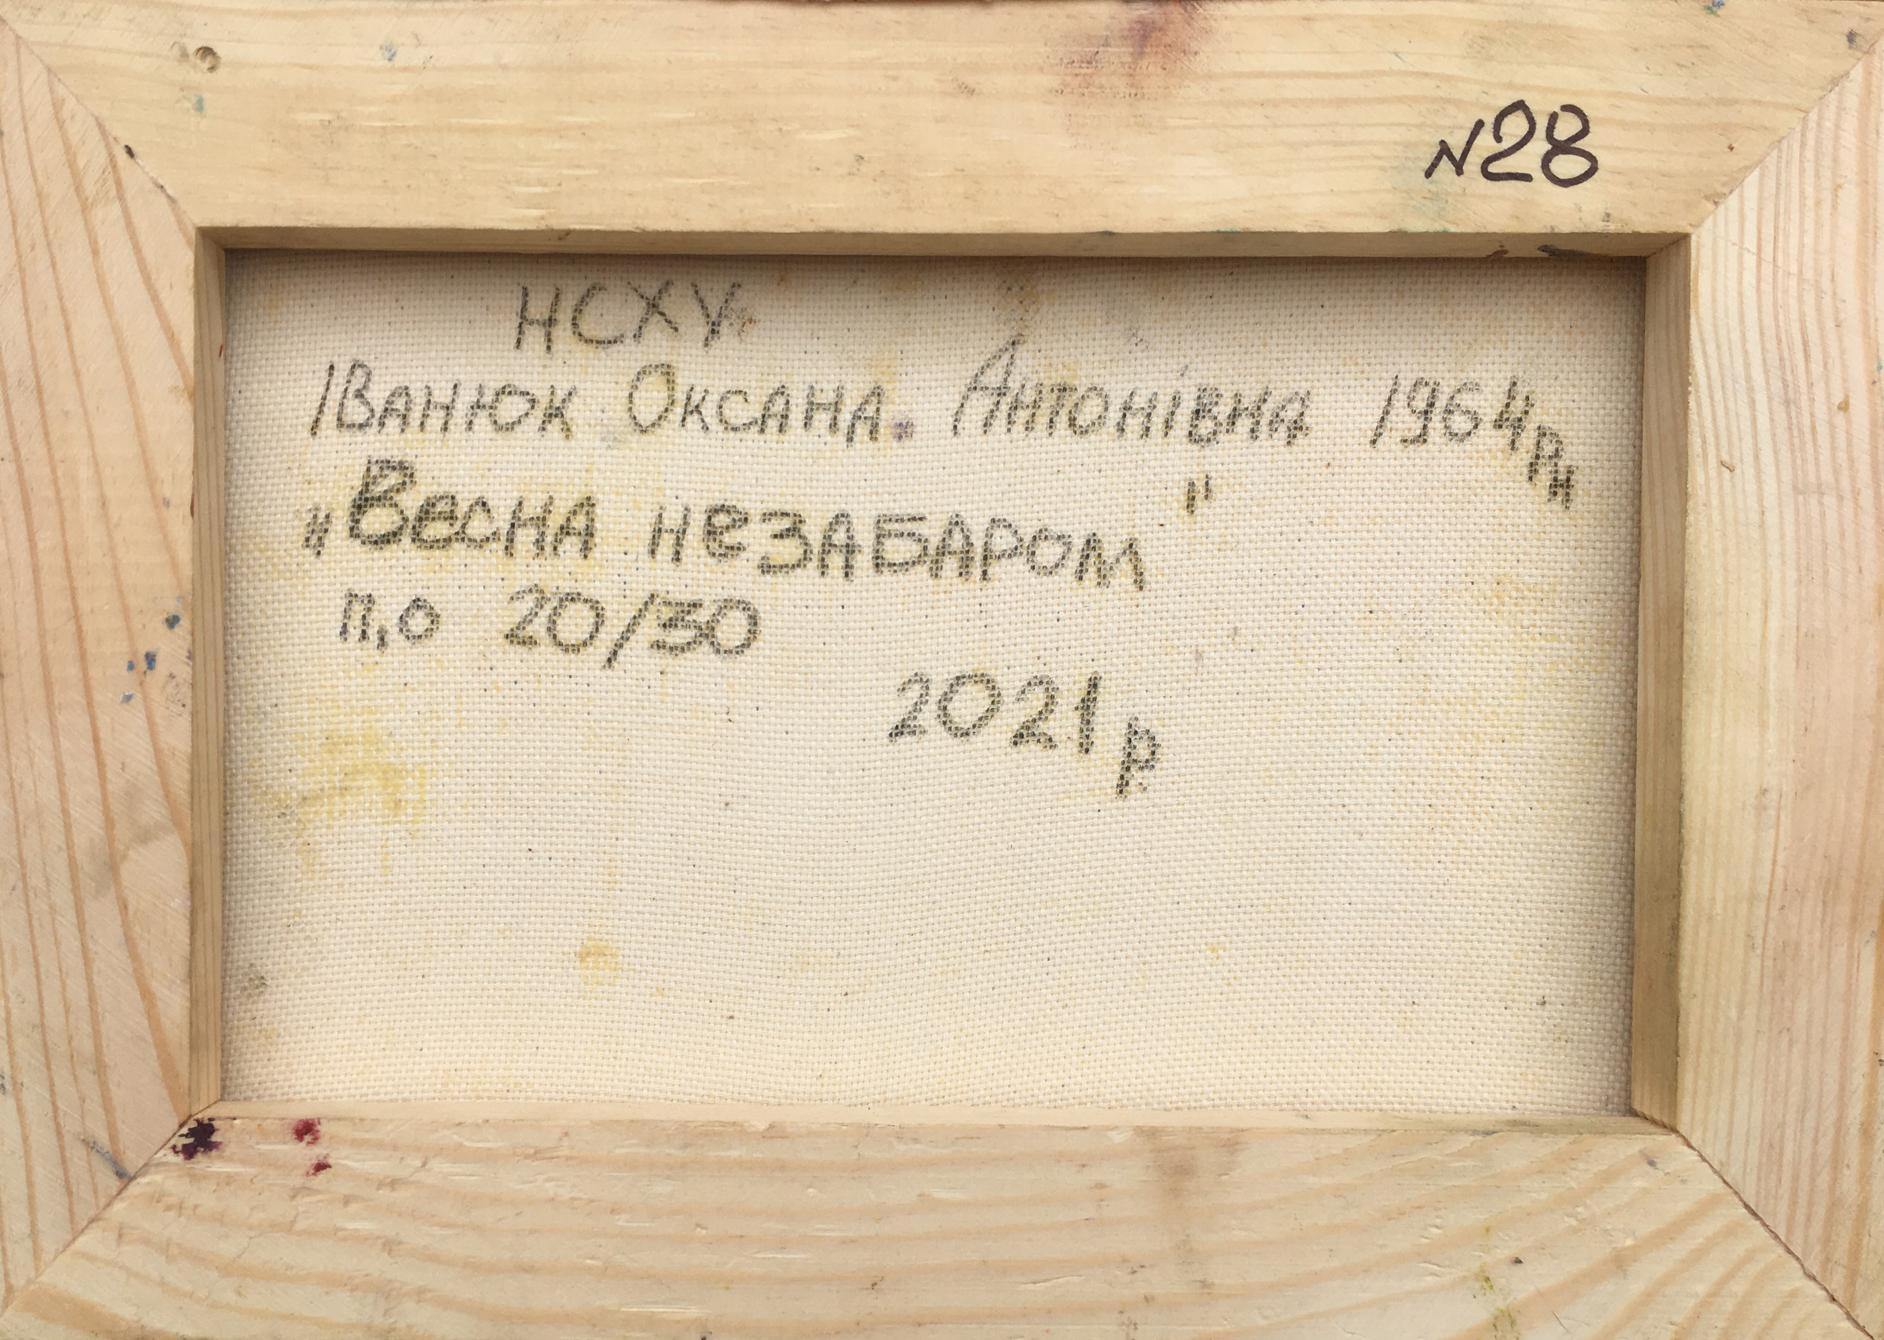 N28
НСХУ
Іванюк Оксана. Антонівна 1964рн
„Весна незабаром"
п,о 20/30
2021р